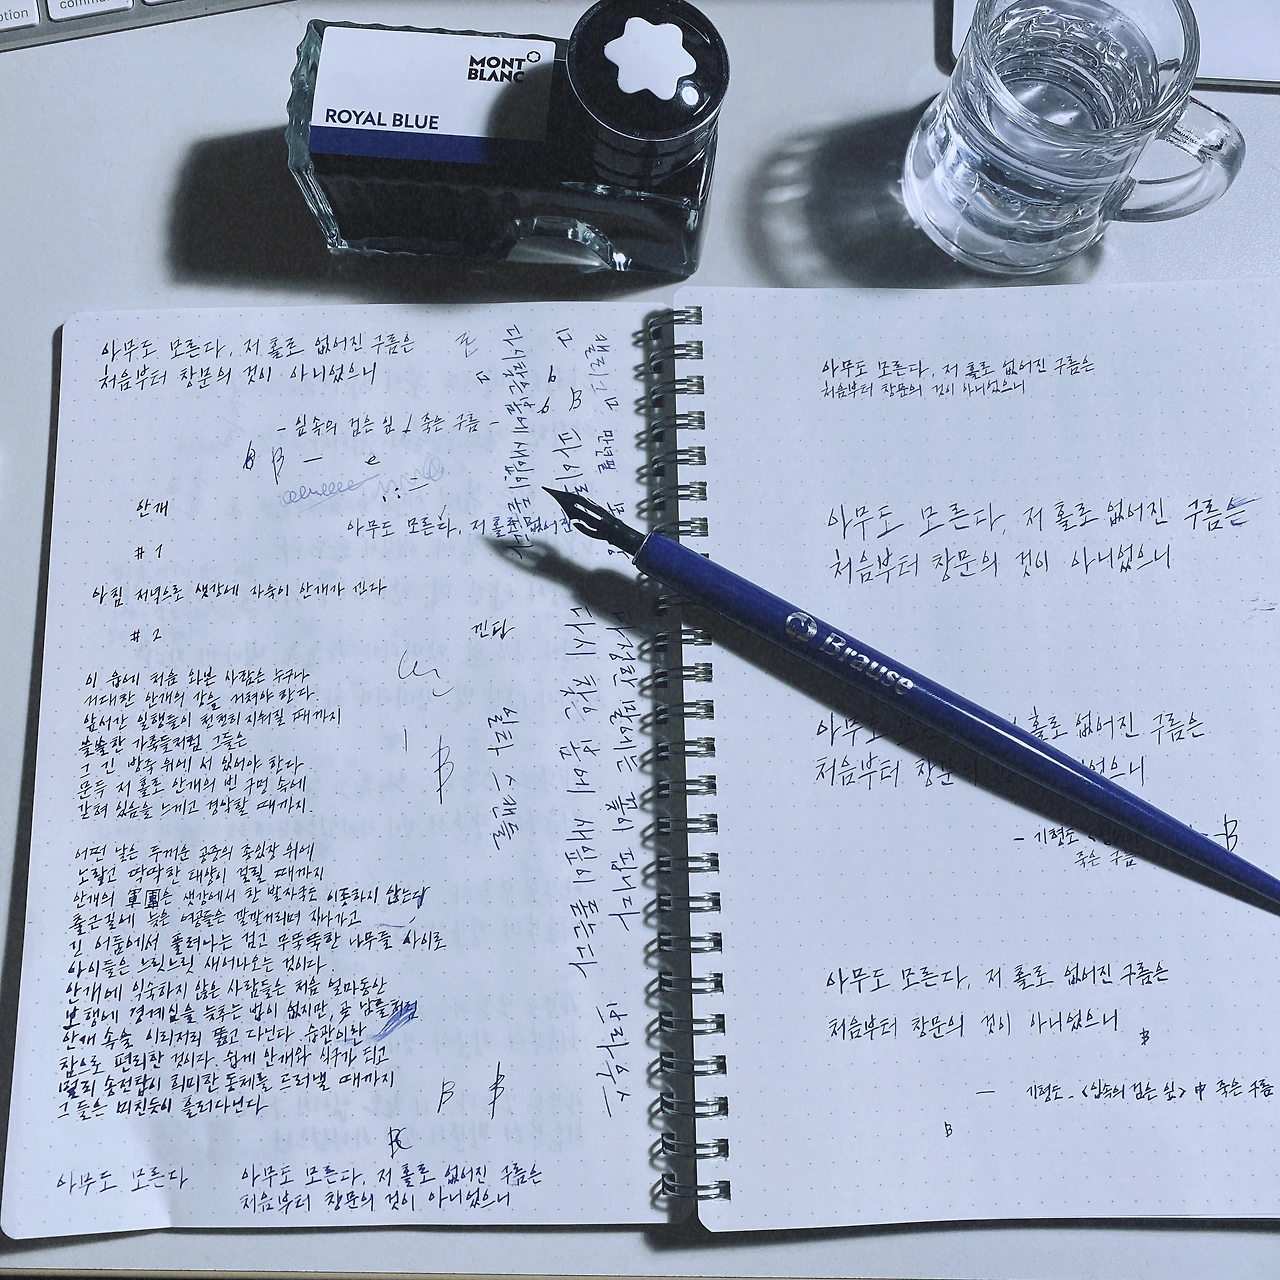 option
command
MONT
BLANC
ROYAL BLUE
아무도 모른다, 저 홀로 없어진 구름은
처음부터 창문의 것이 아니었으니
- 입속의 검은 잎 / 죽은 구름 -
B B — e
안개
아무도 모른다, 저 홀로 없어진
# 1
아침 저녁으로 샛강에 자욱이 안개가 낀다
# 2
낀답
이 읍에 처음 와본 사람은 누구나
거대한 안개의 강을 거쳐야 한다.
앞서간 일행들이 천천히 지워질 때까지
쓸쓸한 가축들처럼 그들은
그 긴 방죽 위에 서 있어야 한다.
문득 저 홀로 안개의 빈 구멍 속에
갇혀 있음을 느끼고 경악할 때까지.
B
어떤 날은 두꺼운 공중의 종잇장 위에
노랗고 딱딱한 태양이 걸릴 때까지
안개의 軍團은 샛강에서 한 발자국도 이동하지 않는다
출근길에 늦은 여공들은 깔깔거리며 지나가고
긴 어둠에서 풀려나는 검고 무뚝뚝한 나무들 사이로
아이들은 느릿느릿 새어나오는 것이다.
안개에 익숙하지 않은 사람들은 처음 얼마동안
보행에 경계심을 늦추는 법이 없지만, 곧 남들처럼
안개 속을 이리저리 뚫고 다닌다. 습관이란
참으로 편리한 것이다. 쉽게 안개와 식구가 되고
멀리 송전탑이 희미한 동체를 드러낼 때까지
그들은 미친듯이 흘러다닌다
B B
아무도 모른다
아무도 모른다, 저 홀로 없어진 구름은
처음부터 창문의 것이 아니었으니
다시 찾은 봄에 새잎이 돋는다
다정한 말에는 꽃이 핀다
만년필
Brause
아무도 모른다, 저 홀로 없어진 구름은
처음부터 창문의 것이 아니었으니
아무도 모른다, 저 홀로 없어진 구름은
처음부터 창문의 것이 아니었으니
아무도 홀로 없어진 구름은
처음부터 창문의 것이 아니었으니
- 기형도 <입속의 - B
죽은 구름
아무도 모른다, 저 홀로 없어진 구름은
처음부터 창문의 것이 아니었으니
B
— 기형도 - <입속의 검은 잎> 中 죽은 구름
B